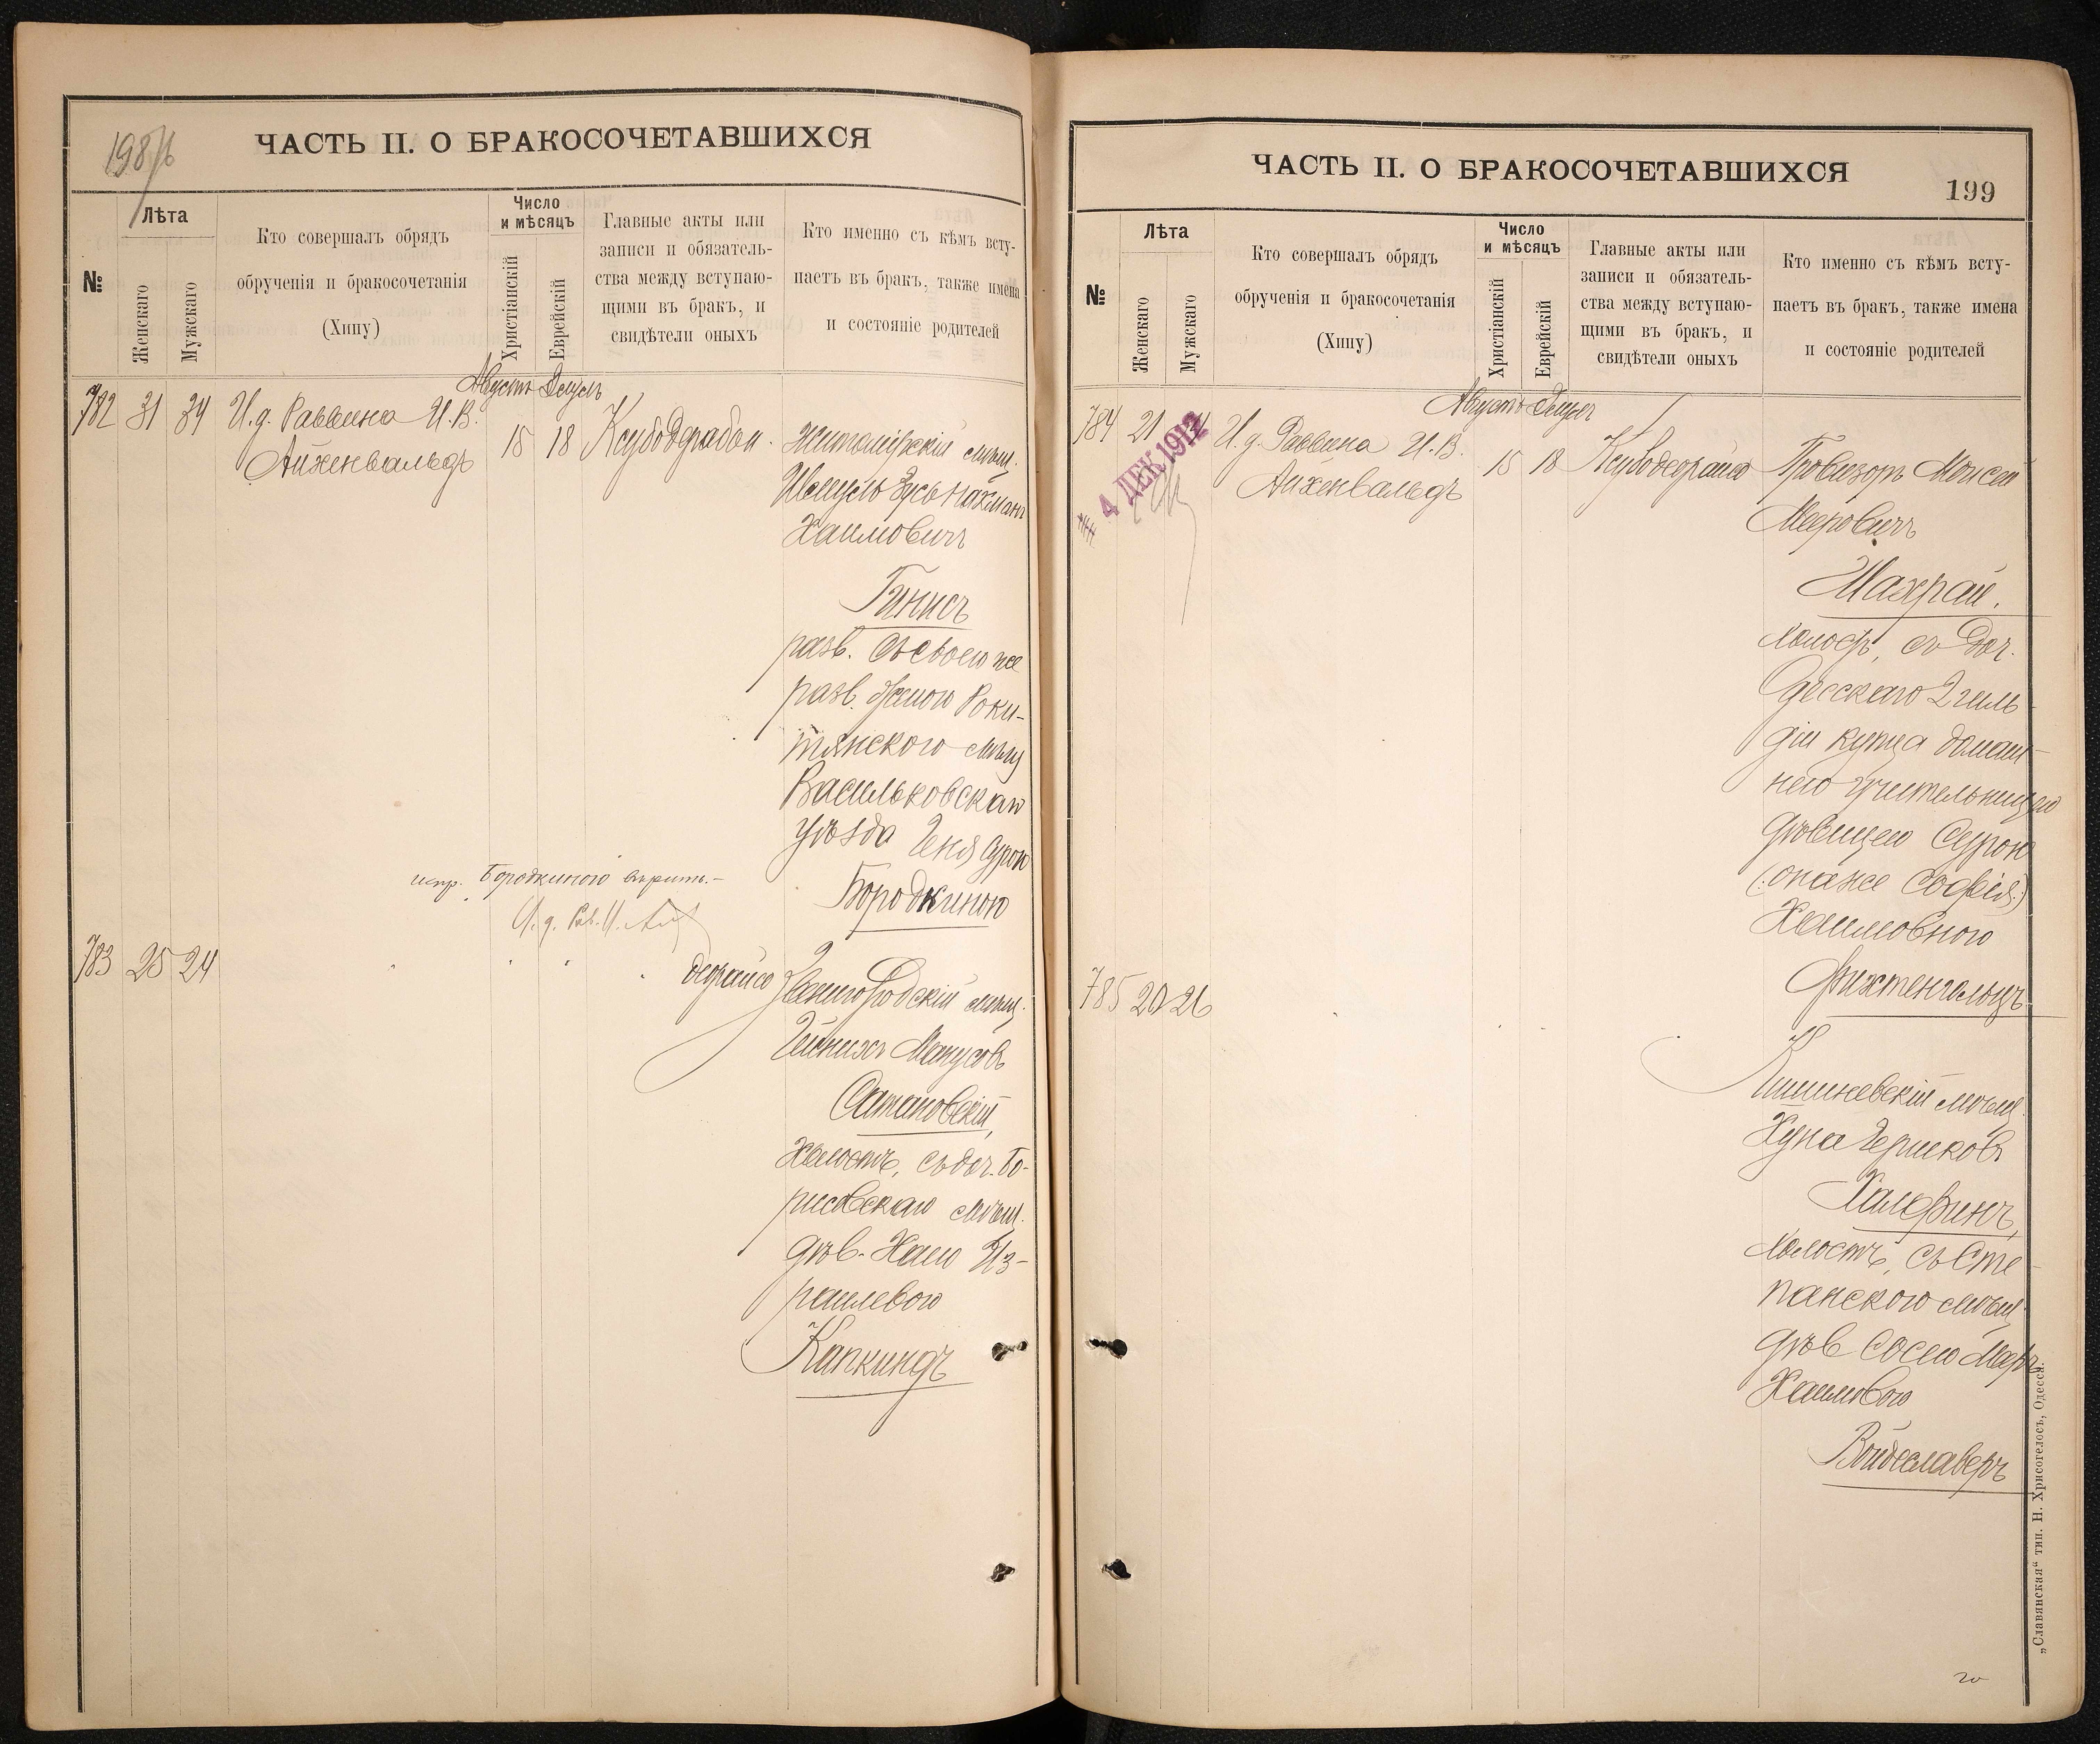 ЧАСТЬ II. О БРАКОСОЧЕТАВШИХСЯ
№
Лѣта
Женскаго
Мужскаго
Кто совершалъ обрядъ
обрученія и бракосочетанія
(Хипу)
Число
и мѣсяцъ
Христіанскій
Еврейскій
Главные акты или
записи и обязатель-
ства между вступаю-
щими въ бракъ, и
свидѣтели оныхъ
Кто именно съ кѣмъ всту-
паетъ въ бракъ, также имена
и состояніе родителей
782 31 34
И. д. Раввина И. В.
Айхенвальдъ
Августъ
15 18
Житомірскій мѣщ.
Нахманъ
Хаимовичъ
Гинисъ
разв. съ своею же
разв. женою Роки-
тянского мѣщ
Васильковскаго
уѣзда Геня Сурою
Бородкиною
испр. Бородкиного вѣрить.-
И. д. Рав. И.
783 25 24
деорайсо
Звенигородскій мѣщ.
Сатановскій,
Холостъ, съ доч. Бо-
рисовскаго мѣщ.
дѣв. Хаею Из-
раилевою
Капкиндъ
ЧАСТЬ II. О БРАКОСОЧЕТАВШИХСЯ
199
№
Лѣта
Женскаго
Мужскаго
Кто совершалъ обрядъ
обрученія и бракосочетанія
(Хипу)
Число
и мѣсяцъ
Христіанскій
Еврейскій
Главные акты или
записи и обязатель-
ства между вступаю-
щими въ бракъ, и
свидѣтели оныхъ
Кто именно съ кѣмъ всту-
паетъ въ бракъ, также имена
и состояніе родителей
784 21
4 ДЕК 1912
И. д. Раввина И. В.
Айхенвальдъ
Августъ
15 18
Ксубодеорайсо
Провизоръ Моисей
Меровичъ
Шахрай.
холостъ, съ доч.
Одесскаго 2 гиль-
діи купца домаш-
нею учительницею
дѣвицею Сурою
(:она же Софія:)
Хаимовною
Фихтенгольцъ
785 20 26
Кишиневскій мѣщ.
Хуна Гершковъ
Халфинъ,
холостъ, съ Сте-
панского мѣщ.
дѣв. Сосею
Хаимовою
Войдеславеръ
„Славянская“ тип. Н. Хрисогелосъ, Одесса.